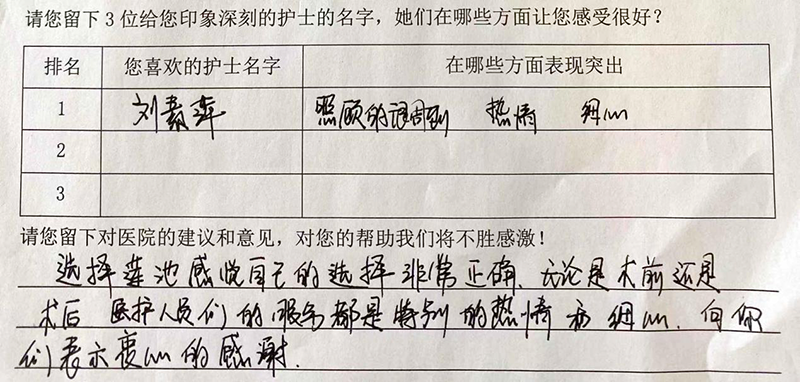 请您留下3位给您印象深刻的护士的名字，她们在哪些方面让您感受很好？
排名 您喜欢的护士名字 在哪些方面表现突出
1 刘青萍 照顾的很周到 热情 细心
2
3
请您留下对医院的建议和意见，对您的帮助我们将不胜感激！
选择莲池感觉自己的选择非常正确。无论是术前还是
术后 医护人员们的服务都是特别的热情和细心. 向你
们表示衷心的感谢.